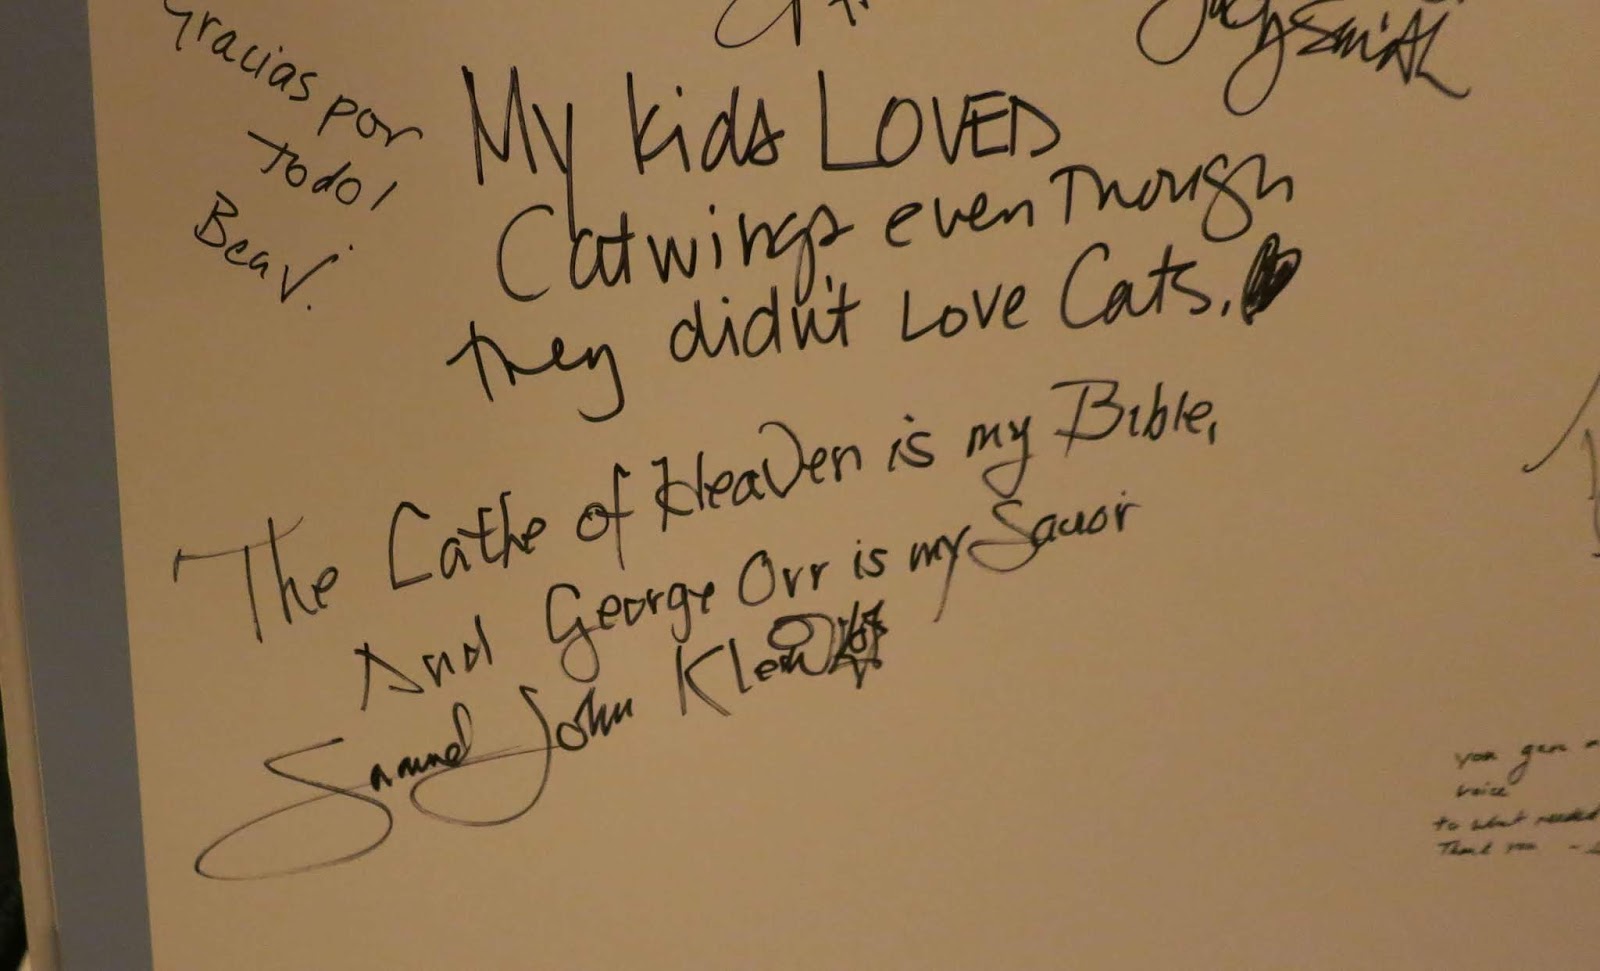 Gracias por
todo!
Beav.
Smith
My kids LOVED
Catwings even though
they didn't love Cats.
The Lathe of Heaven is my Bible,
And George Orr is my Savior
Samuel John Klein
you gave
voice
to what needed
Thank you